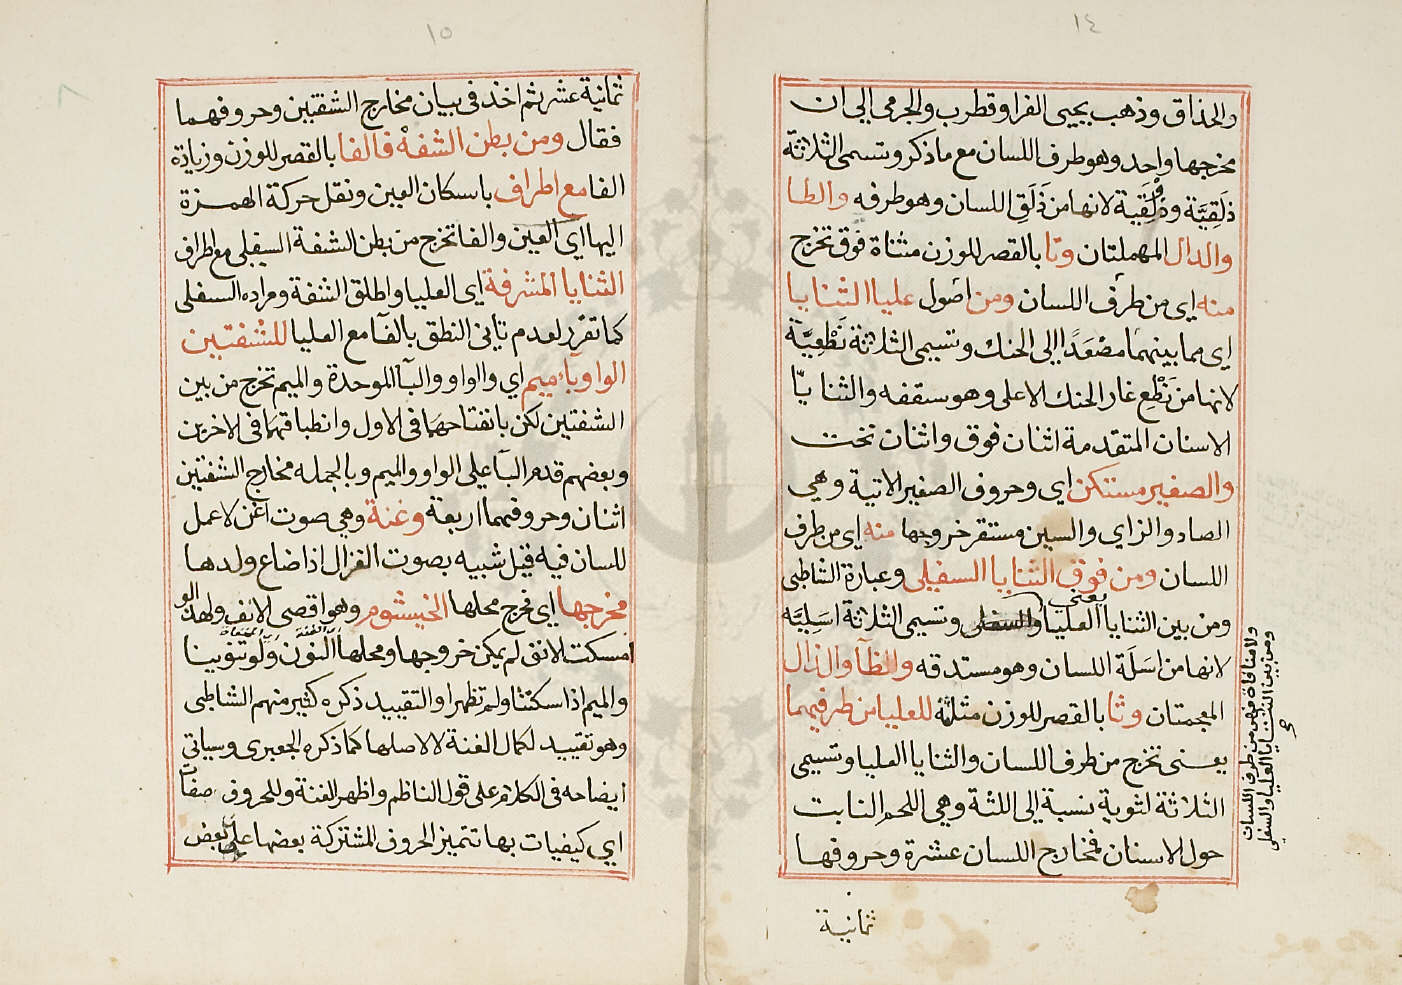 ١٤
والحذاق وذهب يحيى الفرا وقطرب والجرمي الى ان
مخرجها واحد وهو طرف اللسان مع ما ذكر وتسمى الثلاثة
ذلقِيَّة وذولقية لانها من ذَلَقِ اللسان وهو طرفه والطا
والدال المهملتان وتا بالقصر للوزن مثناة فوق تخرج
منه اى من طرف اللسان ومن اصول عليا الثنايا
اى مما بينهما مصْعَدًا الى الحنك وتسمى الثلاثة نَطْعِيَّة
لانها من نَطْعِ غار الحنك الاعلى وهو سقفه والثنايا
الاسنان المتقدمة اثنان فوق واثنان تحت
والصفير مستكن اى وحروف الصفير الاتية وهي
الصاد والزاي والسين مستقر خروجها منه اى من طرف
اللسان ومن فوق الثنايا السفلى وعبارة الشاطبى
يعنى
ومن بين الثنايا العليا والسفلى وتسمى الثلاثة اسَلِيَّه
لانها من اسَلَة اللسان وهو مستدقه والظآ والذال
المعجمتان وثا بالقصر للوزن مثلثة للعليا من طرفيهما
يعنى تخرج من طرف اللسان والثنايا العليا وتسمى
الثلاثة لثوية نسبة الى اللثة وهي اللحم النابت
حول الاسنان فمخارج اللسان عشرة وحروفها
ثمانية
ولا منافاة فهى من طرف اللسان
ومن بين الثنايا العليا والسفلى
١٥
ثمانية عشر ثم اخذ فى بيان مخارج الشفتين وحروفهما
فقال ومن بطن الشفهْ فالفا بالقصر للوزن وزيادة
الفا مع اطراف باسكان العين ونقل حركة الهمزة
اليها اى العين والفا تخرج من بطن الشفة السفلى مع اطراف
الثنايا المشرفة اى العليا واطلق الشفة ومراده السفلى
كما تقرر لعدم تاتى النطق بالفآ مع العليا للشفتين
الواو بآء ميم اي والواو والبآ الموحدة والميم تخرج من بين
الشفتين لكن بانفتاحهما فى الاول وانطباقهما فى الاخرين
وبعضهم قدم البآ على الواو والميم وبالجمله مخارج الشفتين
اثنان وحروفهما اربعة وغنة وهى صوت اغن لا عمل
للسان فيه قيل شبيه بصوت الغزال اذا ضاع ولدها
مخرجها اى مخرج محلها الخيشوم وهو اقصى الانف ولهذا لو
امسكت الانف لم يمكن خروجها ومحلها النون ولو تنوينا
والميم اذا سكنتا ولم تظهرا والتقييد ذكره كثير منهم الشاطبى
وهو تقييد لكمال الغنة لا لاصلها كما ذكره الجعبرى وسياتى
ايضاحه فى الكلام على قول الناظم واظهر الغنة وللحروف صفات
اي كيفيات بها تتميز الحروف المشتركة بعضها على بعض